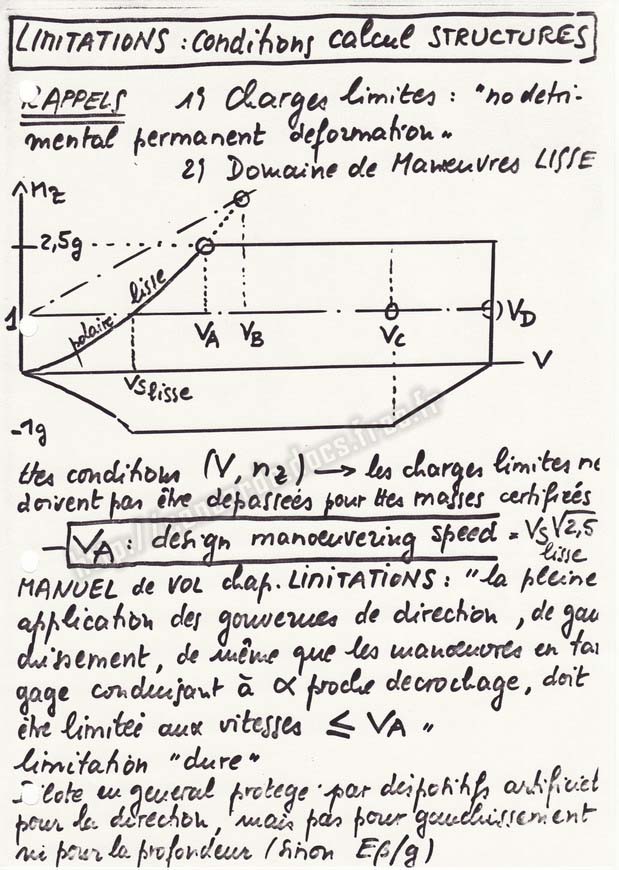 LIMITATIONS : Conditions calcul STRUCTURES
RAPPELS 1) Charges limites : "no detri-
mental permanent deformation"
2) Domaine de Manœuvres LISSE
nz
2,5g
polaire lisse
1
VA VB VC VD
V
VS lisse
-1g
ttes conditions (V, nz) → les charges limites ne
doivent pas être dépassées pour ttes masses certifiées
- VA : design manœuvering speed = VS√2,5
lisse
MANUEL de VOL chap. LIMITATIONS : "la pleine
application des gouvernes de direction, de gau
chissement, de même que les manœuvres en tan
gage conduisant à α proche decrochage, doit
être limitée aux vitesses ≤ VA "
limitation "dure"
Pilote en general protégé par dispositifs artificiel
pour la direction, mais pas pour gauchissement
ni pour la profondeur (sinon Eβ/g)